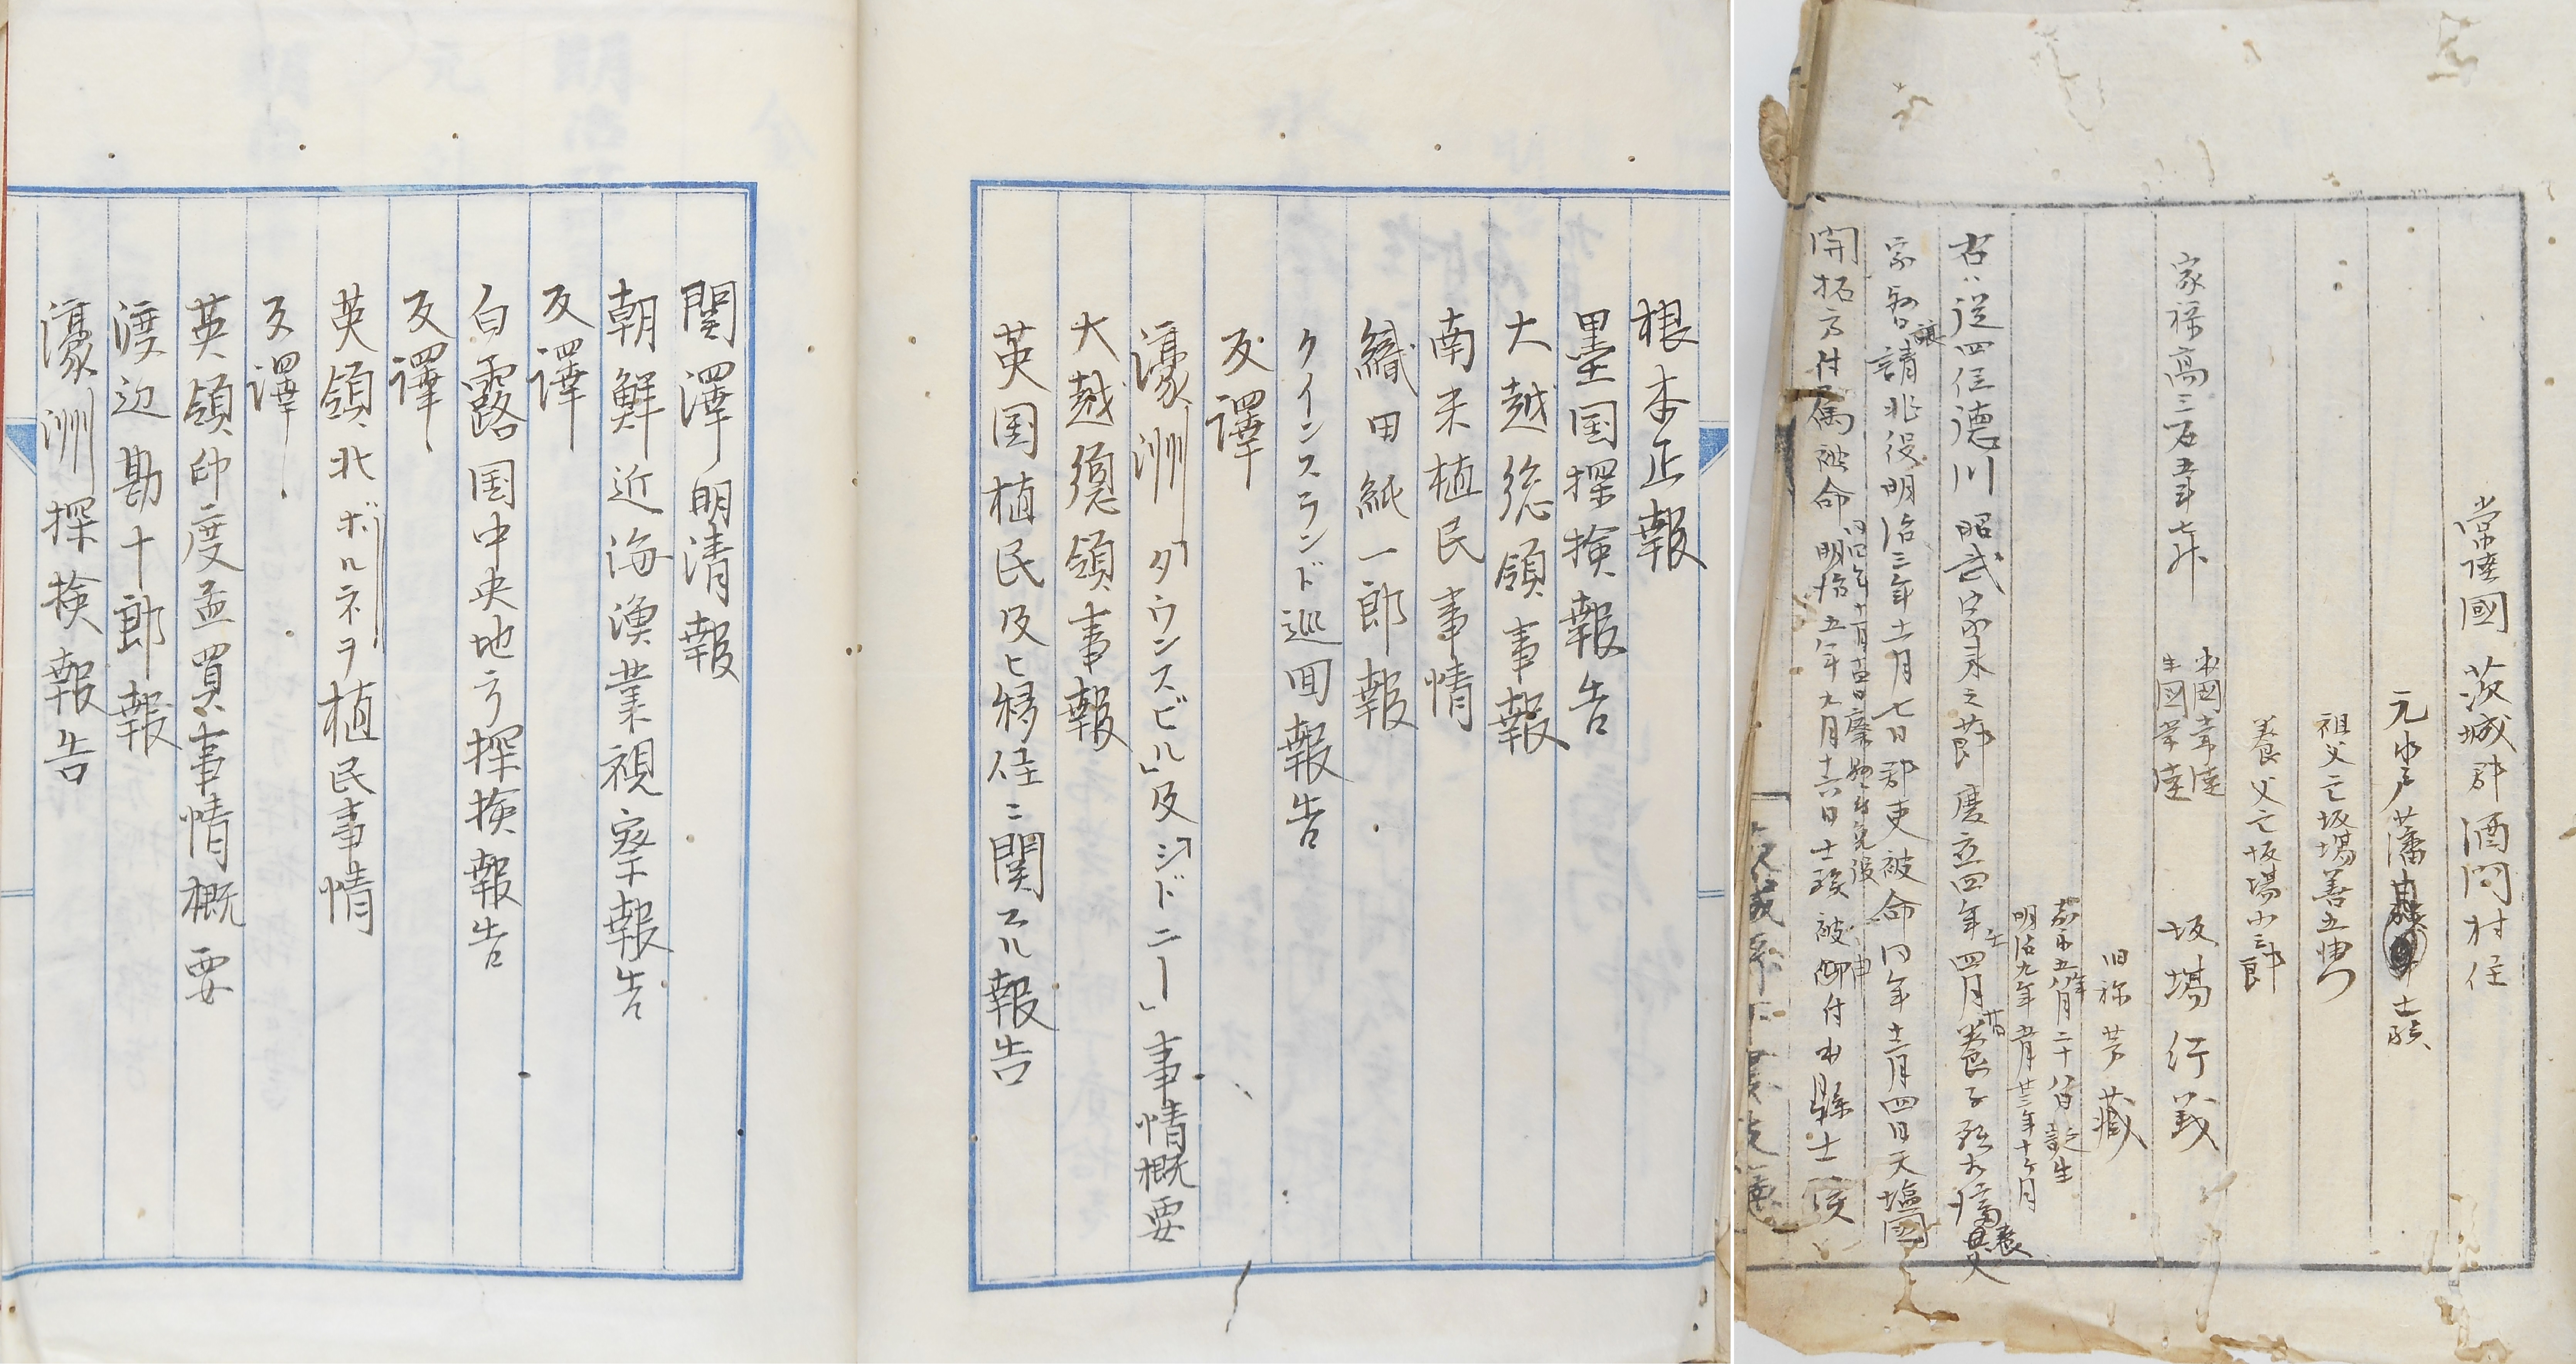 常陸國茨城郡酒門村住
元水戸藩士族
祖父亡坂場善五衛門
養父亡坂場小三郎
家禄高三石五斗七升
本國常陸
生國常陸
坂場行義
旧称芳蔵
嘉永五年八月二十八日誕生
明治九年五月廿三年十ヶ月
右ハ従四位徳川昭武家来之節慶応四年四月養子
請北役明治三年十一月七日郡吏被命同年十二月四日天塩國
開拓方付属被命
明治五年九月十六日士族被仰付
根本正報
墨国探検報告
大越総領事報
南米植民事情
織田紙一郎報
クインスランド巡回報告
反譯
濠洲「タウンスビル」及「シドニー」事情概要
大越総領事報
英国植民及ヒ移住ニ関スル報告
関澤明清報
朝鮮近海漁業視察報告
反譯
白露国中央地方探検報告
反譯
英領北ボルネヲ植民事情
反譯
英領印度孟買事情概要
渡辺勘十郎報
濠洲探検報告